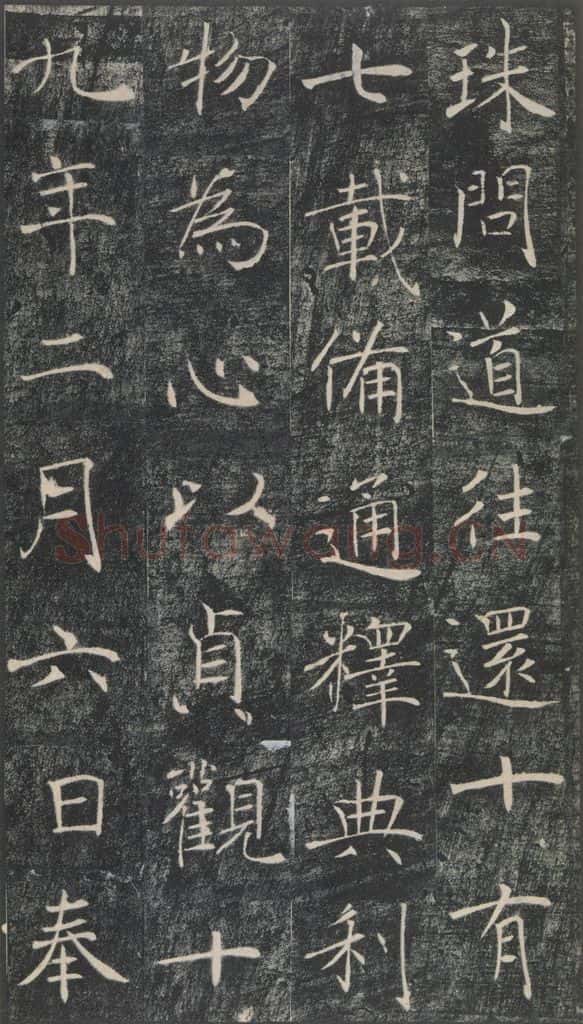 珠問道往還十有
七載備通釋典利
物為心以貞觀十
九年二月六日奉
Shufawang.CN